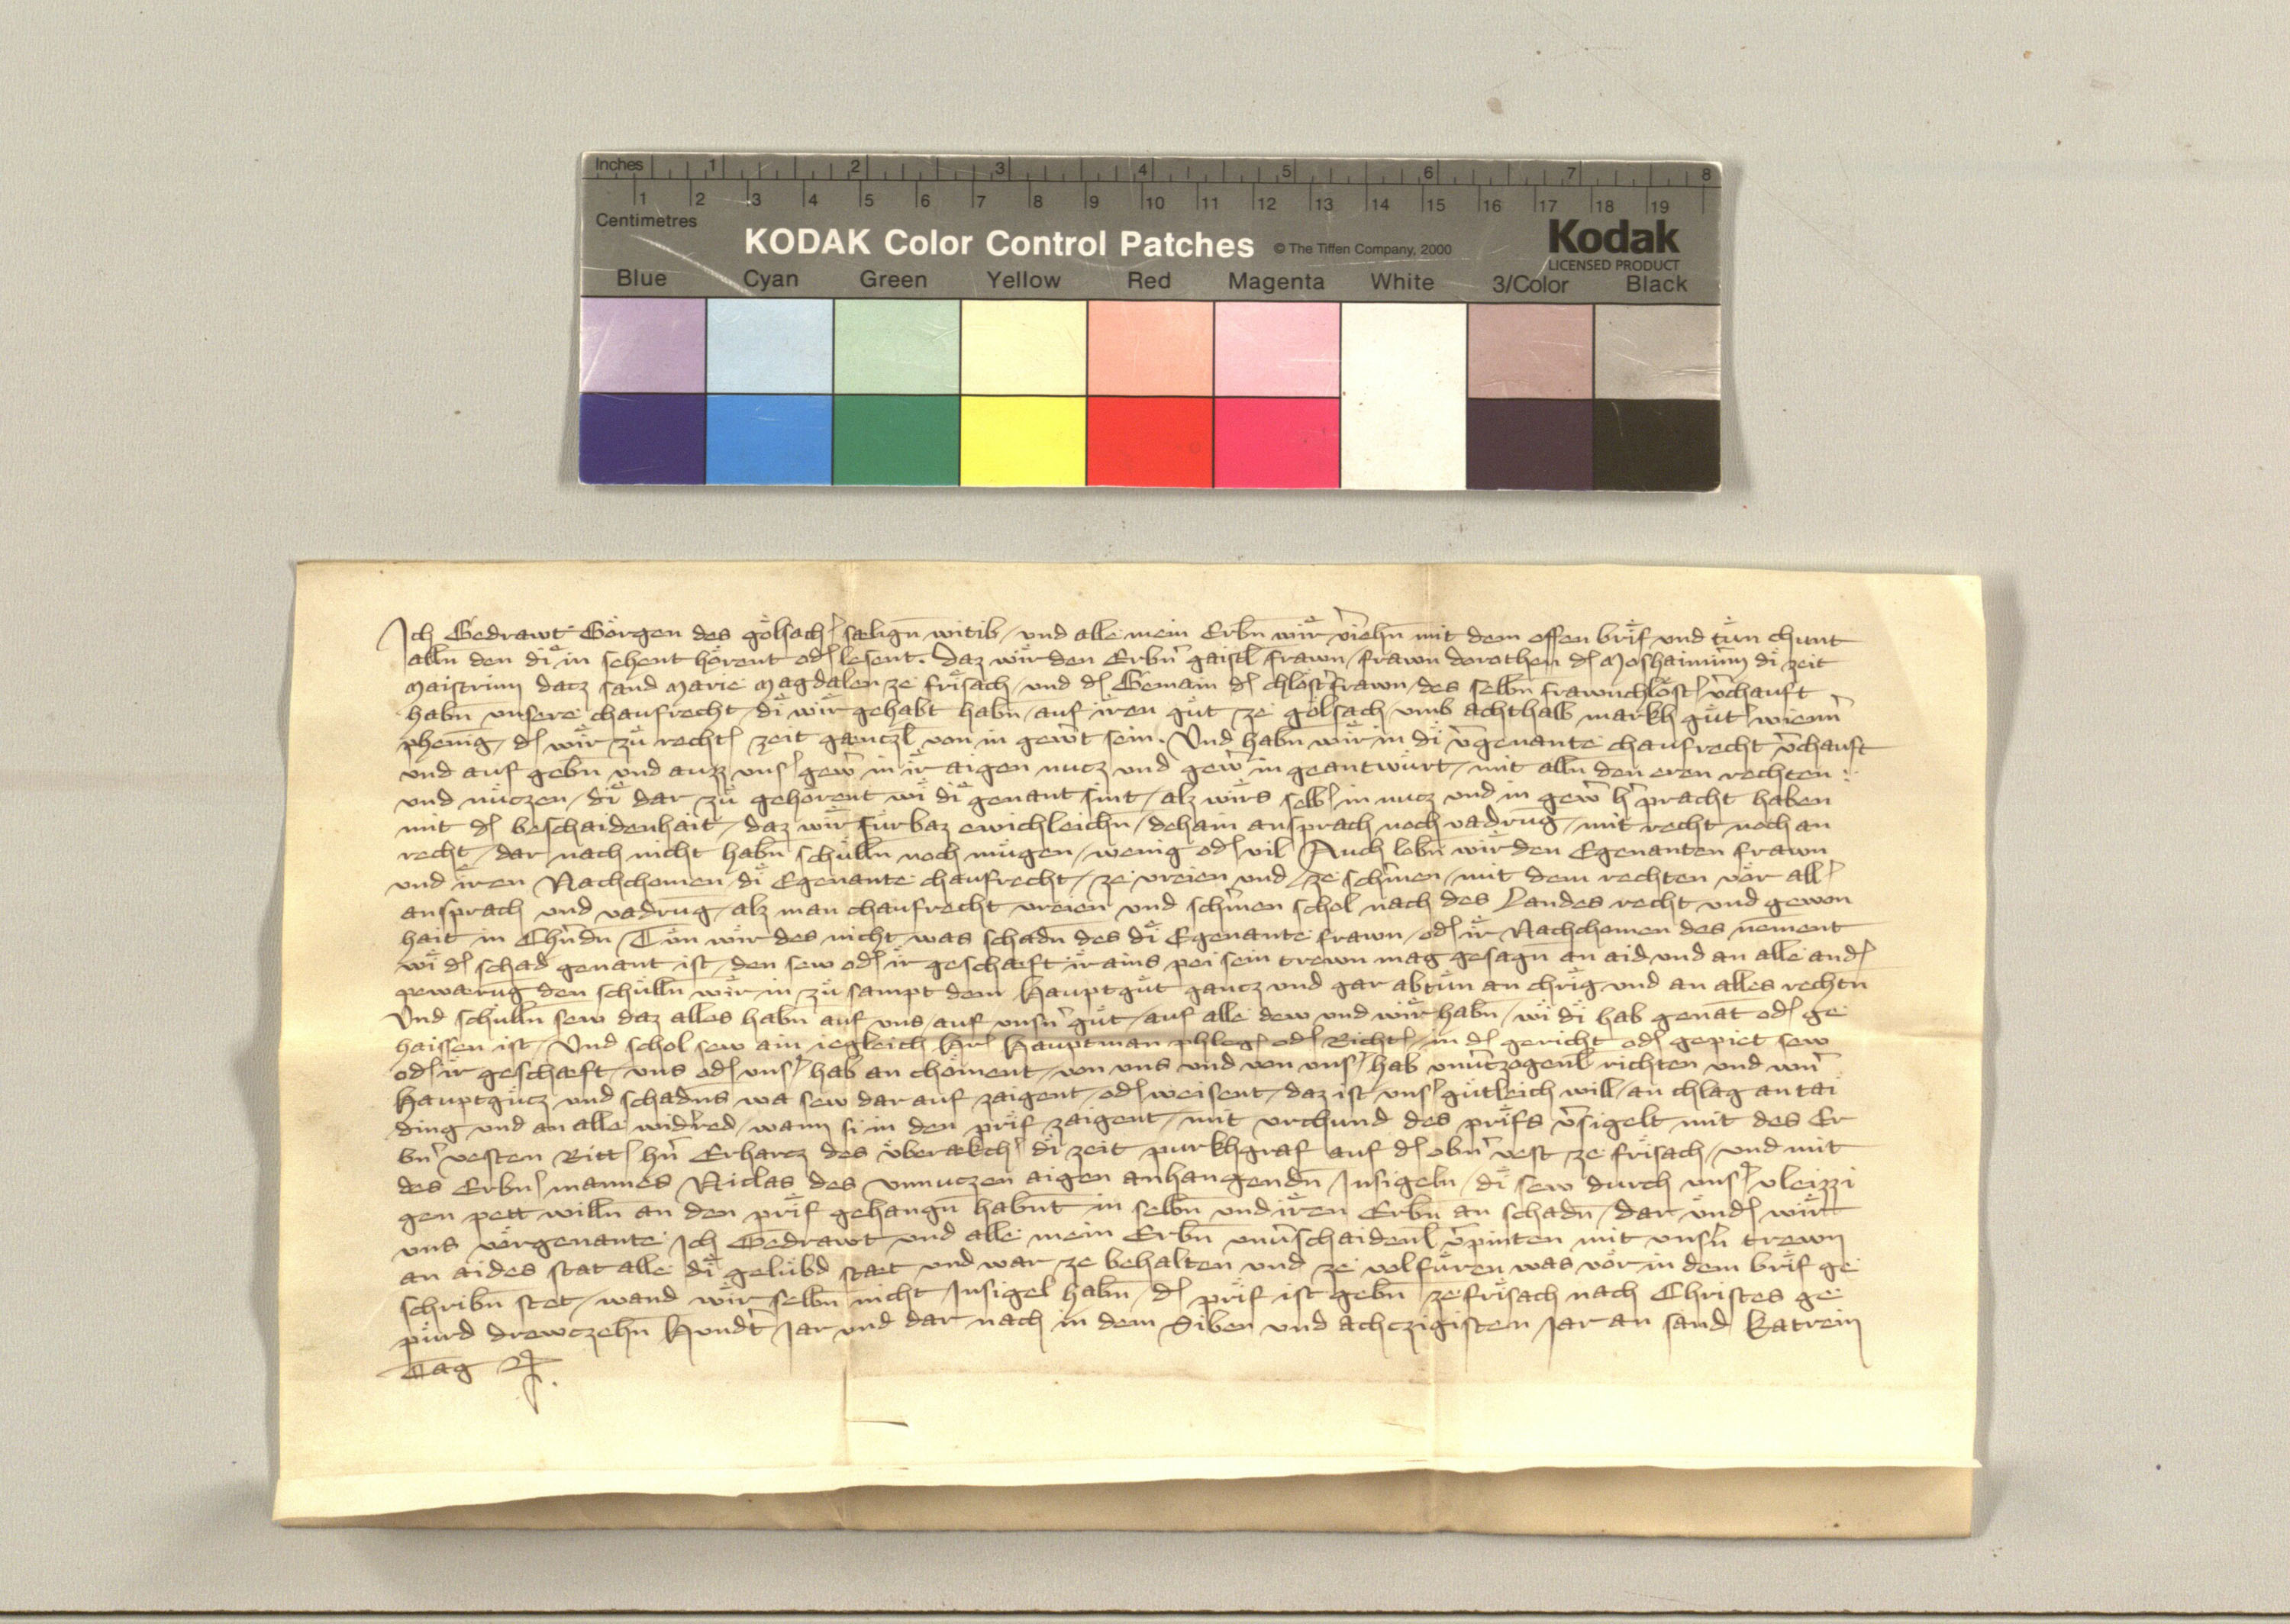 Inches 1 2 3 4 5 6 7 8
1 2 3 4 5 6 7 8 9 10 11 12 13 14 15 16 17 18 19
Centimetres
KODAK Color Control Patches © The Tiffen Company, 2000 Kodak
LICENSED PRODUCT
Blue Cyan Green Yellow Red Magenta White 3/Color Black
Ich Gedrawt Görgen des gölsach̕ sælign̄ witib / und alle mein Erbn̄ wir v̕iehn̄ mit dem offen brif und tün chunt
alln̄ den di in sehent hörent od̕ lesent. Daz wir den Erbn̕ gaistl̄ frawn / frawn dorothen d̕ Moshaimīnn di zeit
Maistrinn datz sand Marie Magdalen ze frisach / und d̕ Gemain d̕ chlöst̕frawn / des selbn̄ frawnchlöst̕ v̕chauft
habn̄ unsere chaufrecht / di wir gehabt habn̄ / auf iren güt ze gölsach / umb achthalb markh güt̕ wienn̕
phenig / d̕ wir zü recht̕ zeit gænczl̄ von in gew̕t sein. Und habn̄ wir in di v̄genante chaufrecht v̕chauft
und auf gebn̄ und auzz uns̕ gew̕ in ir aigen nucz und gew̕ in geantwürt / mit alln̄ den eren rechten
und nüczen / di dar zü gehörent wi di genant sint / alz wirs selb̕ in nucz und in gew̕ h̕pracht haben
mit d̕ beschaidenhait / daz wir fürbaz ewichleichn̄ / dehain ansprach noch vadrūg / mit recht noch an
recht / dar nach nicht habn̄ schülln̄ noch mügen / wenig od̕ vil Auch lobn̄ wir den Egenanten frawn
und iren Nachchomen / di Egenante chaufrecht / ze vreien und ze sch̕men / mit dem rechten vör all̕
ansprach und vadrūg / alz man chaufrecht vreien und sch̕men schol nach des Landes recht und gewon
hait in Ch̕ndn̄ / Tün wir des nicht was schadn̄ des di Egenante frawn / od̕ ir Nachchomen des nēment
wi d̕ schad genant ist / den sew od̕ ir geschæft ir ains pei sein trewn mag gesagn̄ an aid und an alle and̕
pewærūg den schülln̄ wir in zü sampt dem Hauptgüt gancz und gar abtün an chrig und an alles rechtn̄
Und schülln̄ sew daz alles habn̄ auf uns / auf unsn̕ güt / auf alle dew und wir habn̄ / wi di hab genāt od̕ ge
haissen ist / Und schol sew ain iegleich H̕r Hauptman phleg̕ od̕ Richt̕ / in d̕ gericht od̕ gepiet sew
od̕ ir geschæft / uns od̕ uns̕ hab an chöment / von uns und von uns̕ hab unv̕zogenl̄ richten und w̕n
Hauptgücz und schadn̄s wa sew dar auf zaigent / od̕ weisent / daz ist uns̕ gütleich will / an chlag an tai
ding und an alle wid̕red / wann si in den prif zaigent / mit urchund des prifs v̕sigelt mit des Er
bn̕ vesten Ritt̕ h̕n Erharcz des überækch̕ di zeit purkhgraf auf d̕ obn̕ vest ze frisach / und mit
des Erbn̕ mannes Niclas des unnuczen aigen anhangendn̄ Insigeln / di sew durch uns̕ vleizzi
gen pett willn̄ an den prif gehangn̄ habnt̄ in selbn̄ und iren Erbn̄ an schadn̄ / dar und̕ wir
uns vörgenante Ich Gedrawt und alle mein Erbn̄ unv̕schaidenl̄ v̕pinten mit unsn̕ trewn
an aides stat alle di gelübd stæt und war ze behalten und ze volfüren was vör in dem brif ge
schribn̄ stet / wand wir selbn̄ nicht Insigel habn̄ / d̕ prif ist gebn̄ ze frisach nach Christes ge
pürd drewczehn̄ Hund̕t Iar und dar nach in dem Siben und achczigisten Iar an sand Katrein
Tag